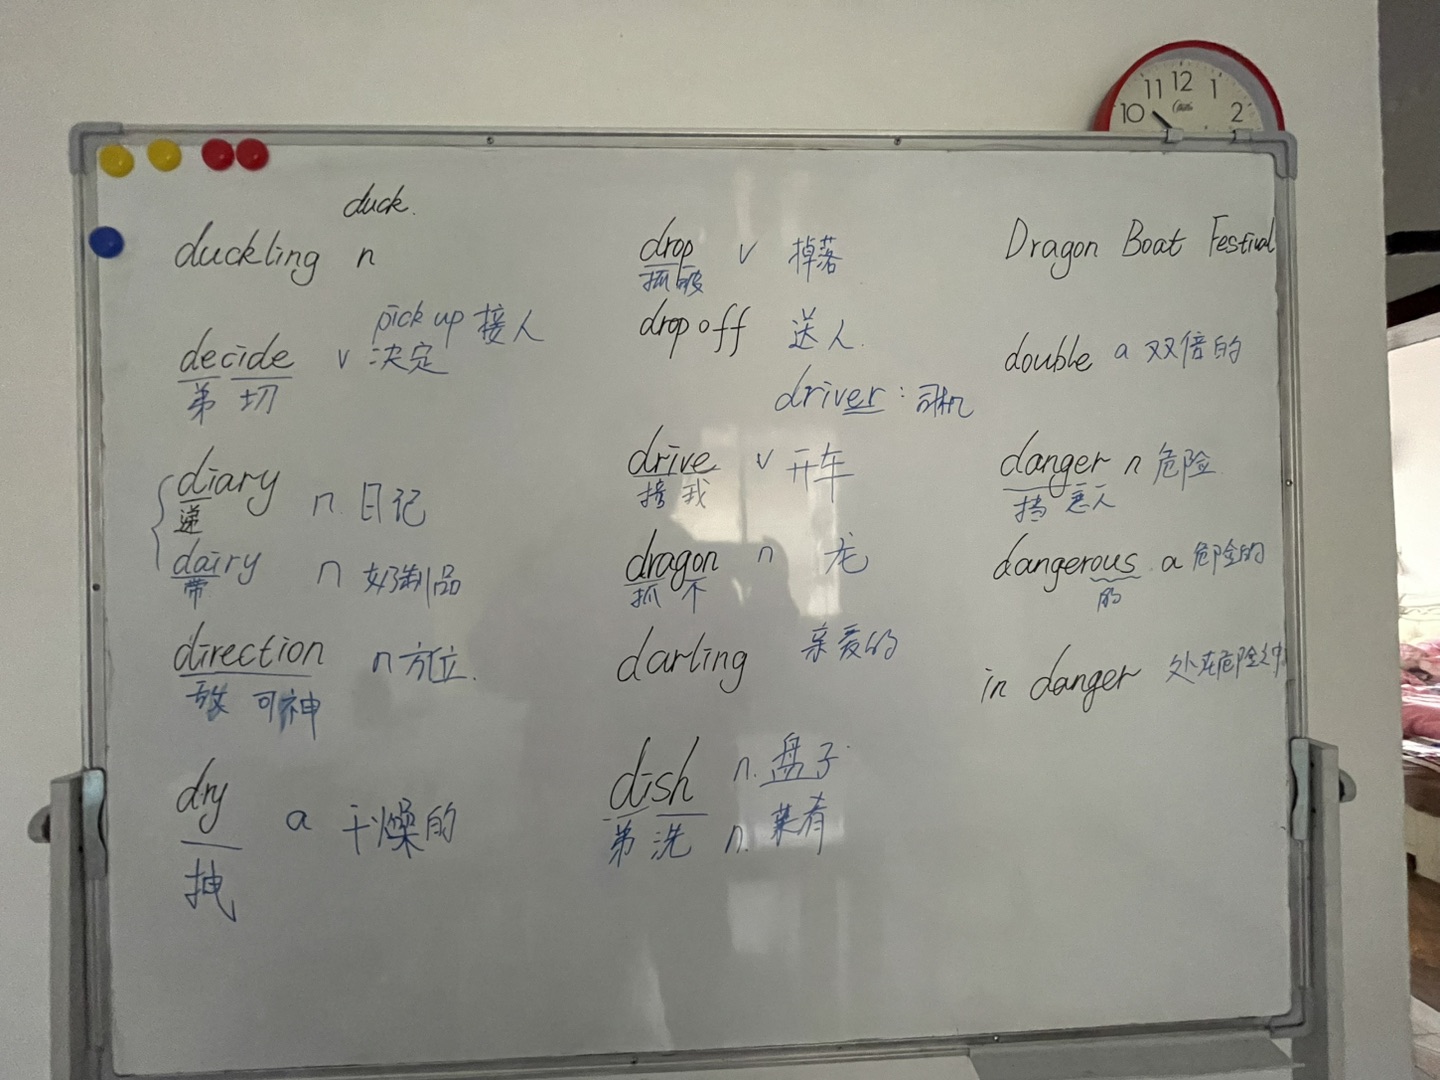 duck.
duckling n
pick up 接人
decide v 决定
弟 切
diary n 日记
递
dairy n 奶制品
带
direction n 方位.
敌 可神
dry a 干燥的
拽
drop v 掉落
抓 破
drop off 送人.
driver : 司机
drive v 开车
我
dragon n 龙
抓 不
darling 亲爱的
dish n. 盘子
弟 洗 n. 菜肴
Dragon Boat Festival
double a 双倍的
danger n 危险
挡 恶人
dangerous. a 危险的
的
in danger 处在危险之中
11 12 1
10 2